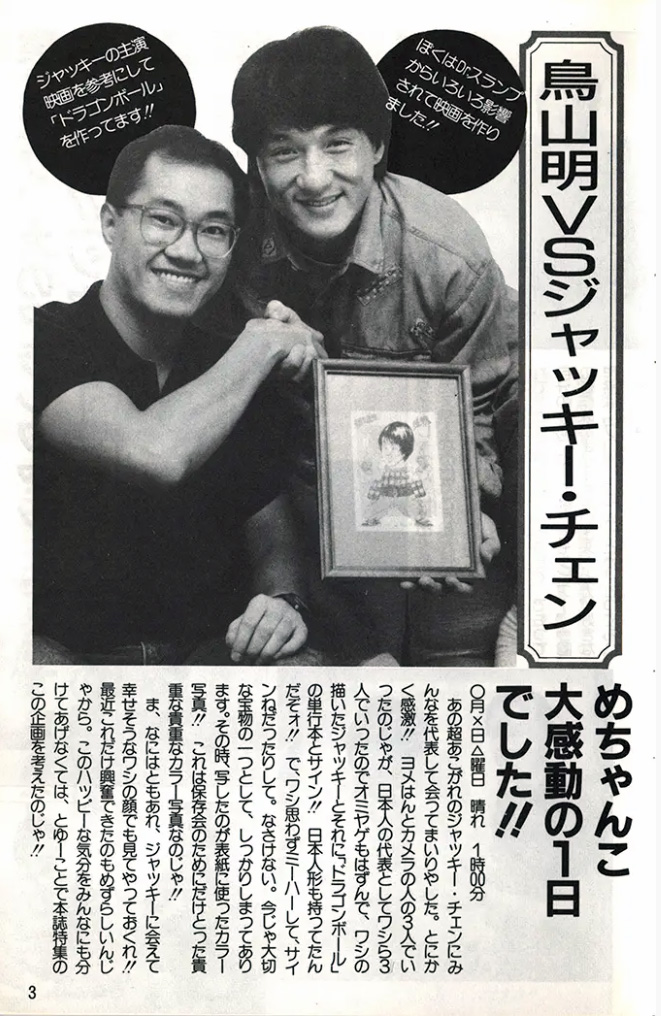 鳥山明VSジャッキー・チェン
ぼくはDrスランプ
からいろいろ影響
されて映画を作り
ました!!
ジャッキーの主演
映画を参考にして
「ドラゴンボール」
を作ってます!!
めちゃんこ
大感動の1日
でした!!
○月×日△曜日 晴れ 1時00分
あの超あこがれのジャッキー・チェンにみ
んなを代表して会ってまいりやした。とにか
く感激!! ヨメはんとカメラの人の3人でい
ったのじゃが、日本人の代表としてワシら3
人でいったのでオミヤゲもはずんで、ワシの
描いたジャッキーとそれに『ドラゴンボール』
の単行本とサイン!! 日本人形も持ってたん
だぞォ!! で、ワシ思わずミーハーして、サイ
ンねだったりして。なさけない。今じゃ大切
な宝物の一つとして、しっかりしまってあり
ます。その時、写したのが表紙に使ったカラー
写真!! これは保存会のためにだけとった貴
重な貴重なカラー写真なのじゃ!!
ま、なにはともあれ、ジャッキーに会えて
幸せそうなワシの顔でも見てやっておくれ!!
最近これだけ興奮できたのもめずらしいんじ
ゃから。このハッピーな気分をみんなにも分
けてあげなくては、とゆーことで本誌特集の
この企画を考えたのじゃ!!
3